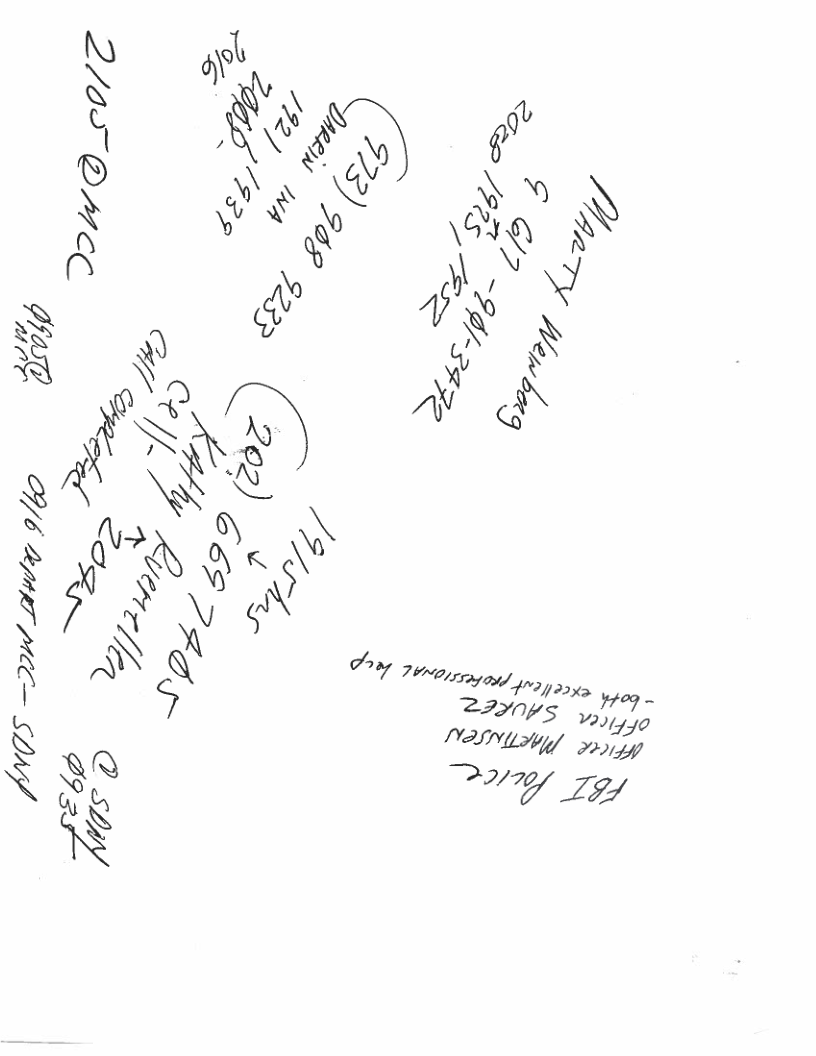 MARTY Weinberg
9 617-901-3472
2028 1925, 1952
(973) 908 9233
DARREN INA
1921, 1939
2006
2016
2105 @ MCC
1915 hrs
(202) 669 7405
Kathy Ruemmler
Cell-
2045
Call completed
0905 @
MCC
0916 DEPART MCC - SDNY
@ SDNY
0935
FBI POLICE
OFFICER MARTINSEN
OFFICER SAUREZ
- both excellent professional help